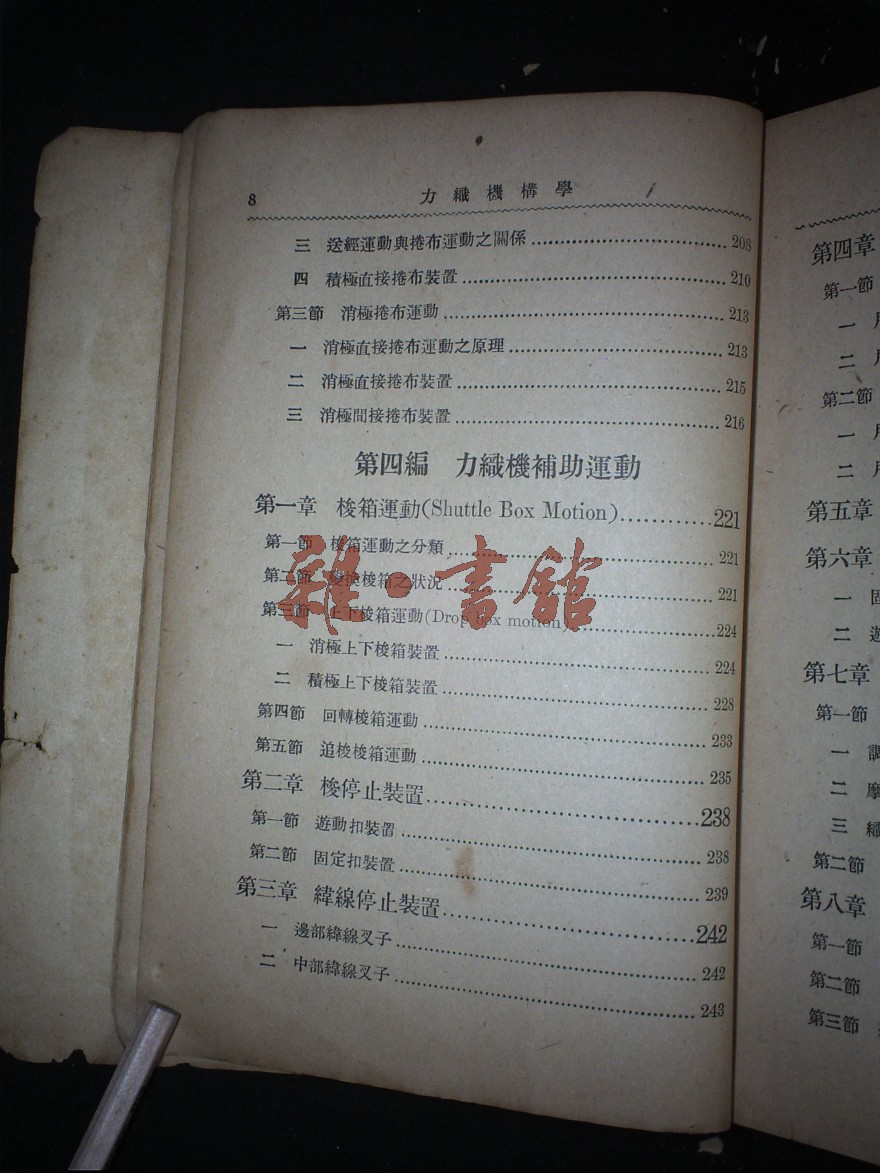 8 力織機構學
三 送經運動與捲布運動之關係 208
四 積極直接捲布裝置 210
第三節 消極捲布運動 213
一 消極直接捲布運動之原理 213
二 消極直接捲布裝置 215
三 消極間接捲布裝置 216
第四編 力織機補助運動
第一章 梭箱運動(Shuttle Box Motion) 221
第一節 梭箱運動之分類 221
第二節 變換梭箱之狀況 221
第三節 上下梭箱運動(Drop box motion) 224
一 消極上下梭箱裝置 224
二 積極上下梭箱裝置 228
第四節 回轉梭箱運動 233
第五節 追梭梭箱運動 235
第二章 梭停止裝置 238
第一節 遊動扣裝置 238
第二節 固定扣裝置 239
第三章 緯線停止裝置 242
一 邊部緯線叉子 242
二 中部緯線叉子 243
雜·書館
第四章
第一節
一
二
第二節
一
二
第五章
第六章
一
二
第七章
第一節
一
二
三
第二節
第八章
第一節
第二節
第三節